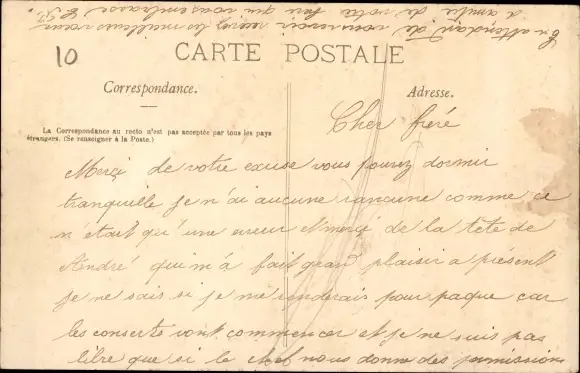 CARTE POSTALE
10
Correspondance.
Adresse.
La Correspondance au recto n'est pas acceptée par tous les pays
étrangers. (Se renseigner à la Poste.)
Cher frère
Merçi de votre excuse vous pouvez dormir
tranquille je n'ai aucune rancune comme ce
n'était qu'une erreur Merçi de la tête de
André qui m'a fait grand plaisir a présent
je ne sais si je me renderais pour paque car
les conserts vont commencer et je ne suis pas
libre que si le chef nous donne des permissions
En attendant de vous revoir recevez les meilleures
d'amitié de votre frère qui vous embrasse